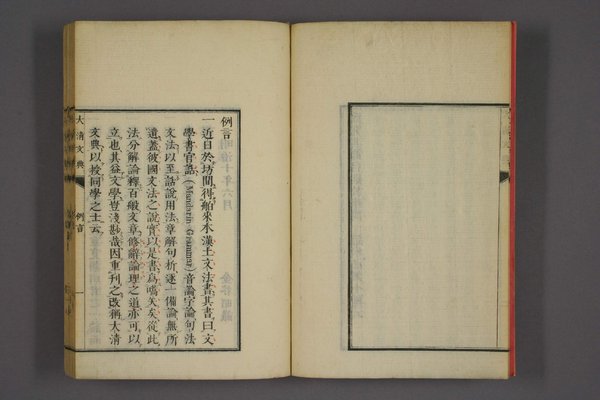 例言
一近日於坊間得舶來本漢土文法書其書曰文
學書官話（Mandarin Grammar）音論字論句法
文法以至話說用法章解句析逐一備論無所
遺蓋彼國文法之說實以是書為嚆矢矣從此
法分解論釋百般文章修辭論理之道亦可以
立也其益文學豈淺尠哉因重刊之改稱大清
文典以授同學之士云
大清文典
例言
一